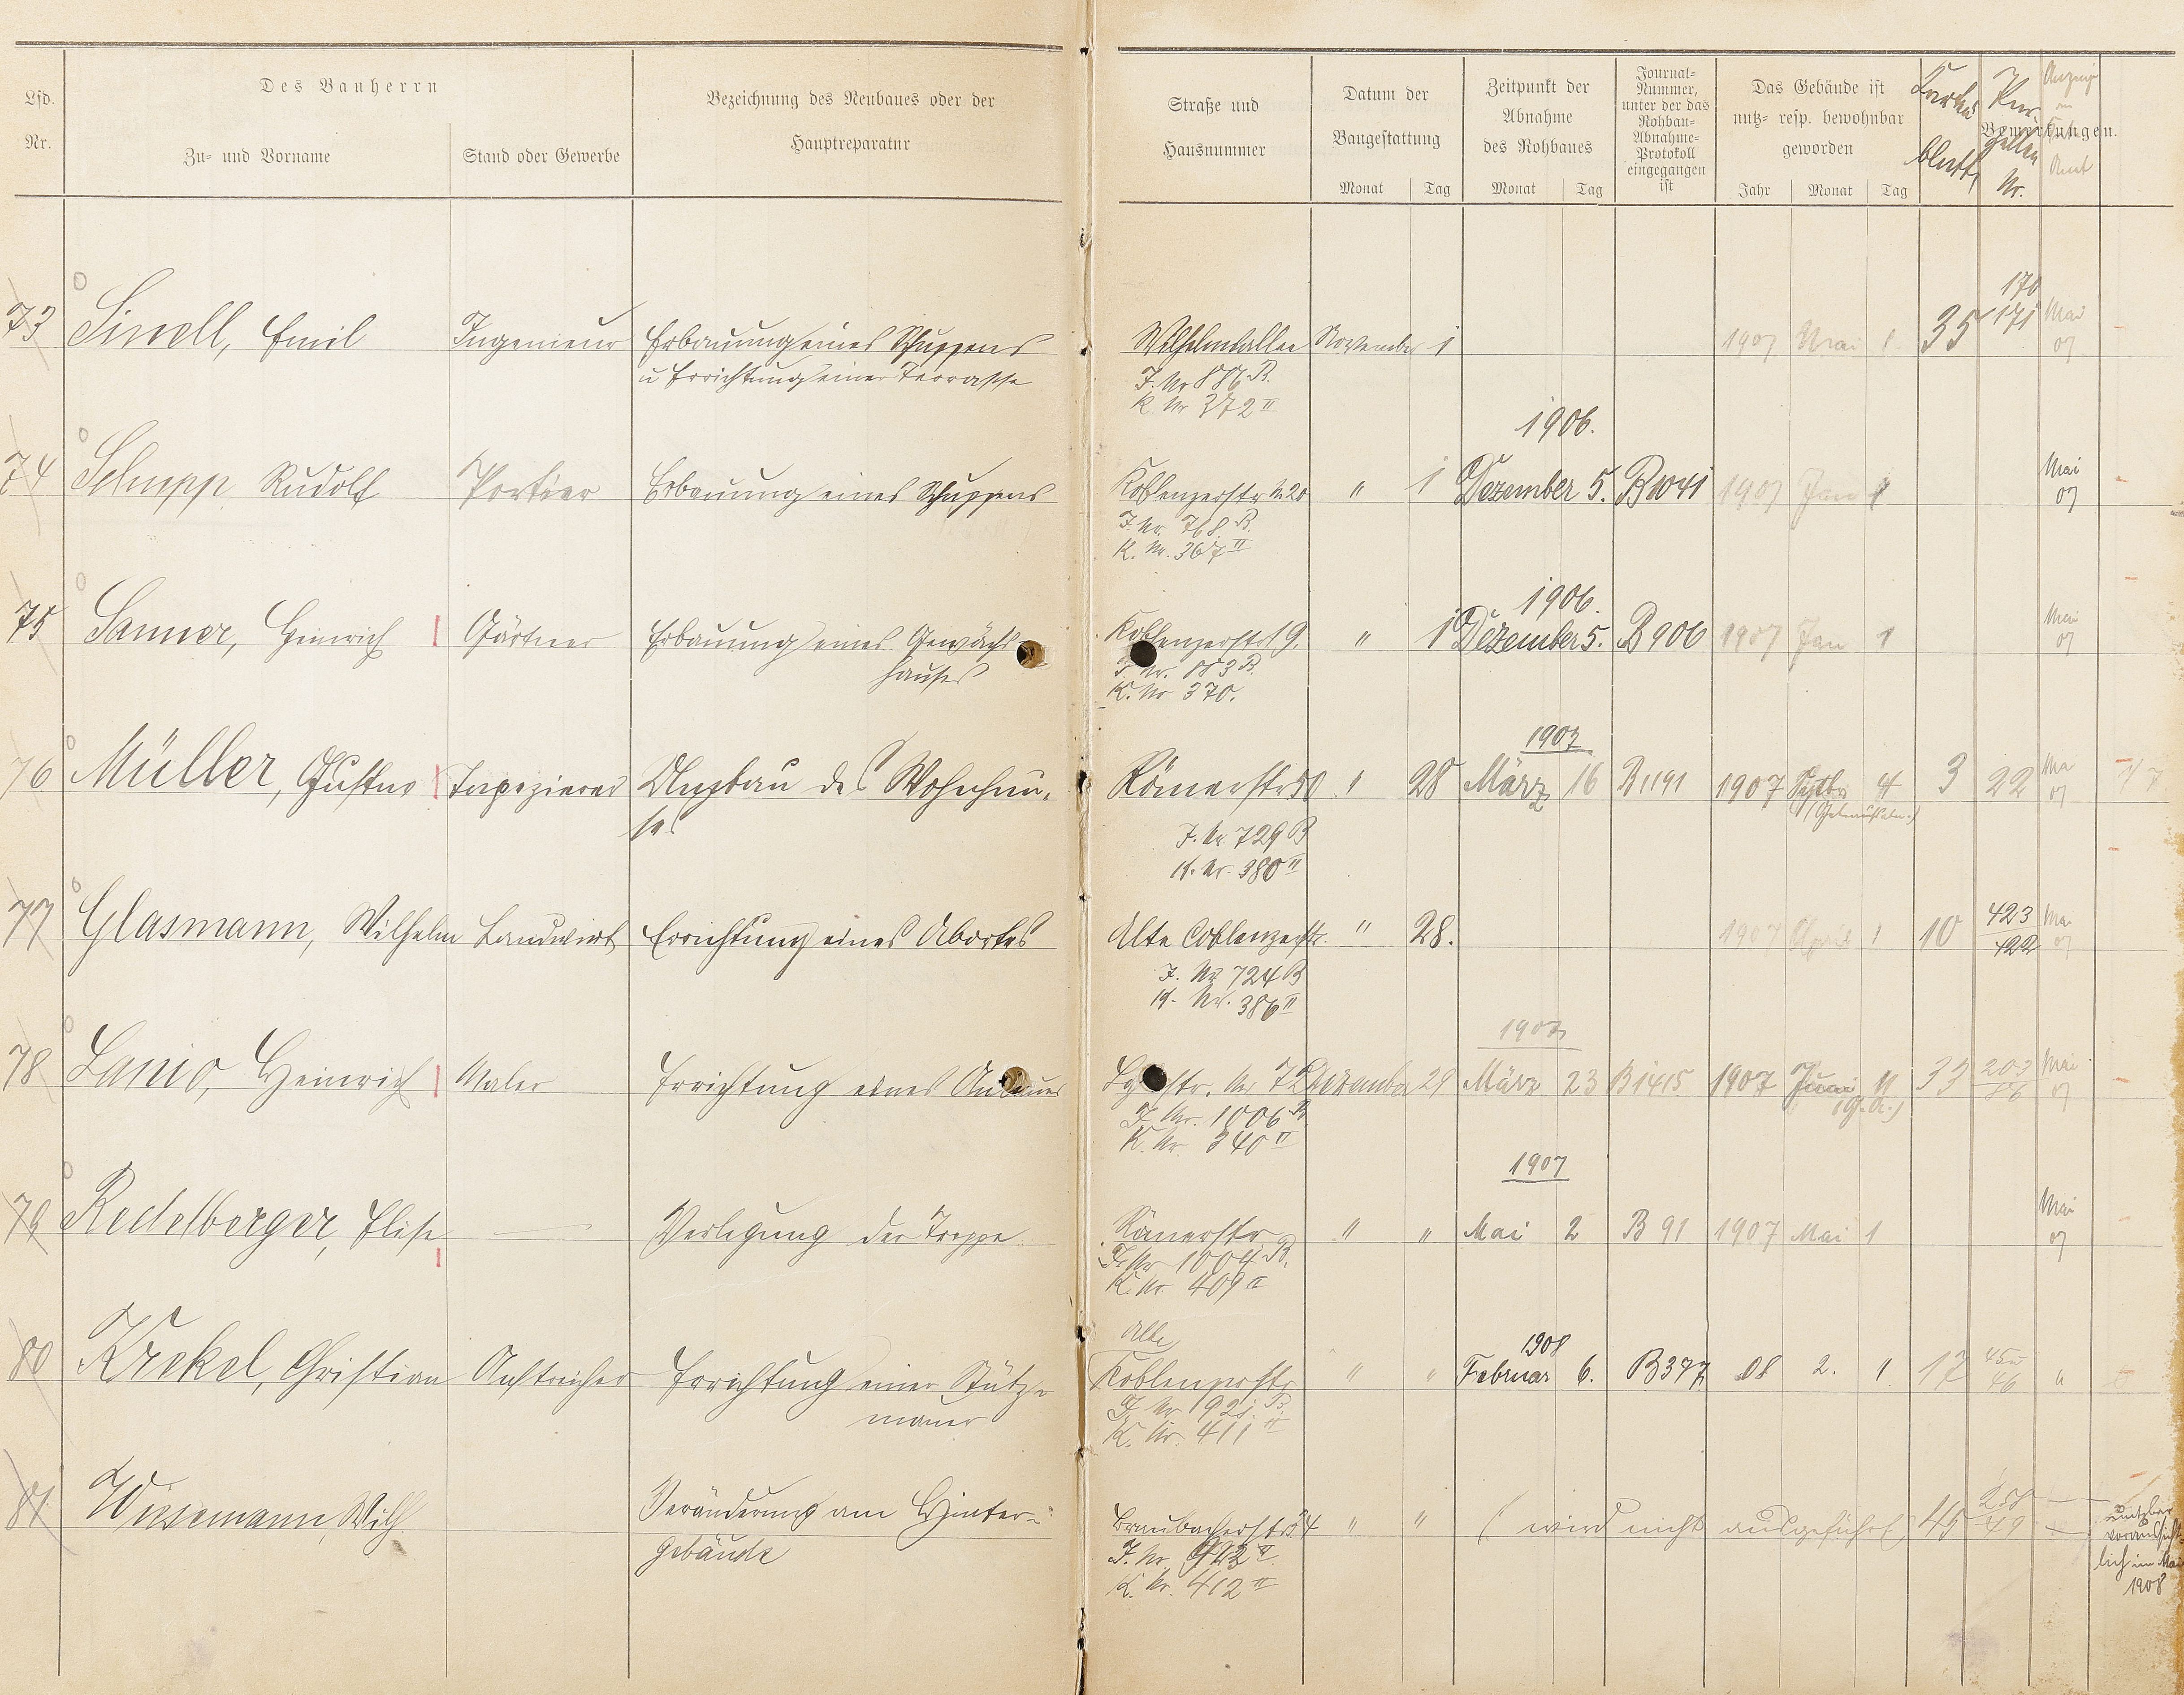 Des Bauherrn
Lfd. Nr.
Zu- und Vorname
Stand oder Gewerbe
Bezeichnung des Neubaues oder der
Hauptreparatur
Straße und
Hausnummer
Datum der
Baugestattung
Monat Tag
Zeitpunkt der
Abnahme
des Rohbaues
Monat Tag
Journal-
Nummer,
unter der das
Rohbau-
Abnahme-
Protokoll
eingegangen
ist
Das Gebäude ist
nutz- resp. bewohnbar
geworden
Jahr Monat Tag
Bemerkungen.
Karten
blatt
Par-
zellen
Nr.
170
73 Sinell, Emil Ingenieur Erbauung eines Schuppens Wilhelmsallee November 1 1907 Mai 1 35 171 Mai
u Errichtung einer Terrasse J. Nr 886 B. 07
K. Nr 372 II
1906.
74 Schupp Rudolf Portier Erbauung eines Schuppens Koblenzerstr N. 20 " 1 Dezember 5. B 1041 1907 Jan 1 Mai
J. Nr. 768 B. 07
K. Nr. 367 II
1906.
75 Sanner, Heinrich Gärtner Erbauung eines Gewächs- Koblenzerstr 19. " 1 Dezember 5. B 906 1907 Jan 1 Mai
hauses J. Nr. 883 B. 07
K. Nr 370.
1907
76 Müller, Gustav Tapezierer Umbau des Wohnhau- Römerstr 50 " 28 März 16 B 1191 1907 Septbr 4 3 22 Mai
ses 07
J. Nr 729 B
K. Nr. 380 II
77 Glasmann, Wilhelm Landwirt Errichtung eines Abortes Alte Coblenzerstr. " 28. 1907 April 1 10 423 Mai
422 07
J. Nr 724 B
K. Nr. 386 II
1907
78 Lanio, Heinrich Maler Errichtung eines Anbaues str. Nr 7 Dezember 29 März 23 B 1415 1907 Juni 11 33 203 Mai
(G. A.) 86 07
J. Nr. 1006 B.
K. Nr. 340 II
1907
79 Redelberger, Elise — Verlegung der Treppe Römerstr " " Mai 2 B 91 1907 Mai 1 Mai
J. Nr 1004 B. 07
K. Nr. 409 II
Alte 1908
80 Krekel, Christian Anstreicher Errichtung einer Stütz- Koblenzerstr " " Februar 6. B 377 08 2. 1. 17 45 u "
mauer 46
J. Nr 1921. B.
K. Nr. 411 II
81 Wissemann, Wilh. Veränderung am Hinter- Braubacherstr 34 " " ( wird nicht ausgeführt ) 45 258
gebäude 49
J. Nr. 942 II
K. Nr. 412 II
nutzbar
voraussicht-
lich im Mai
1908